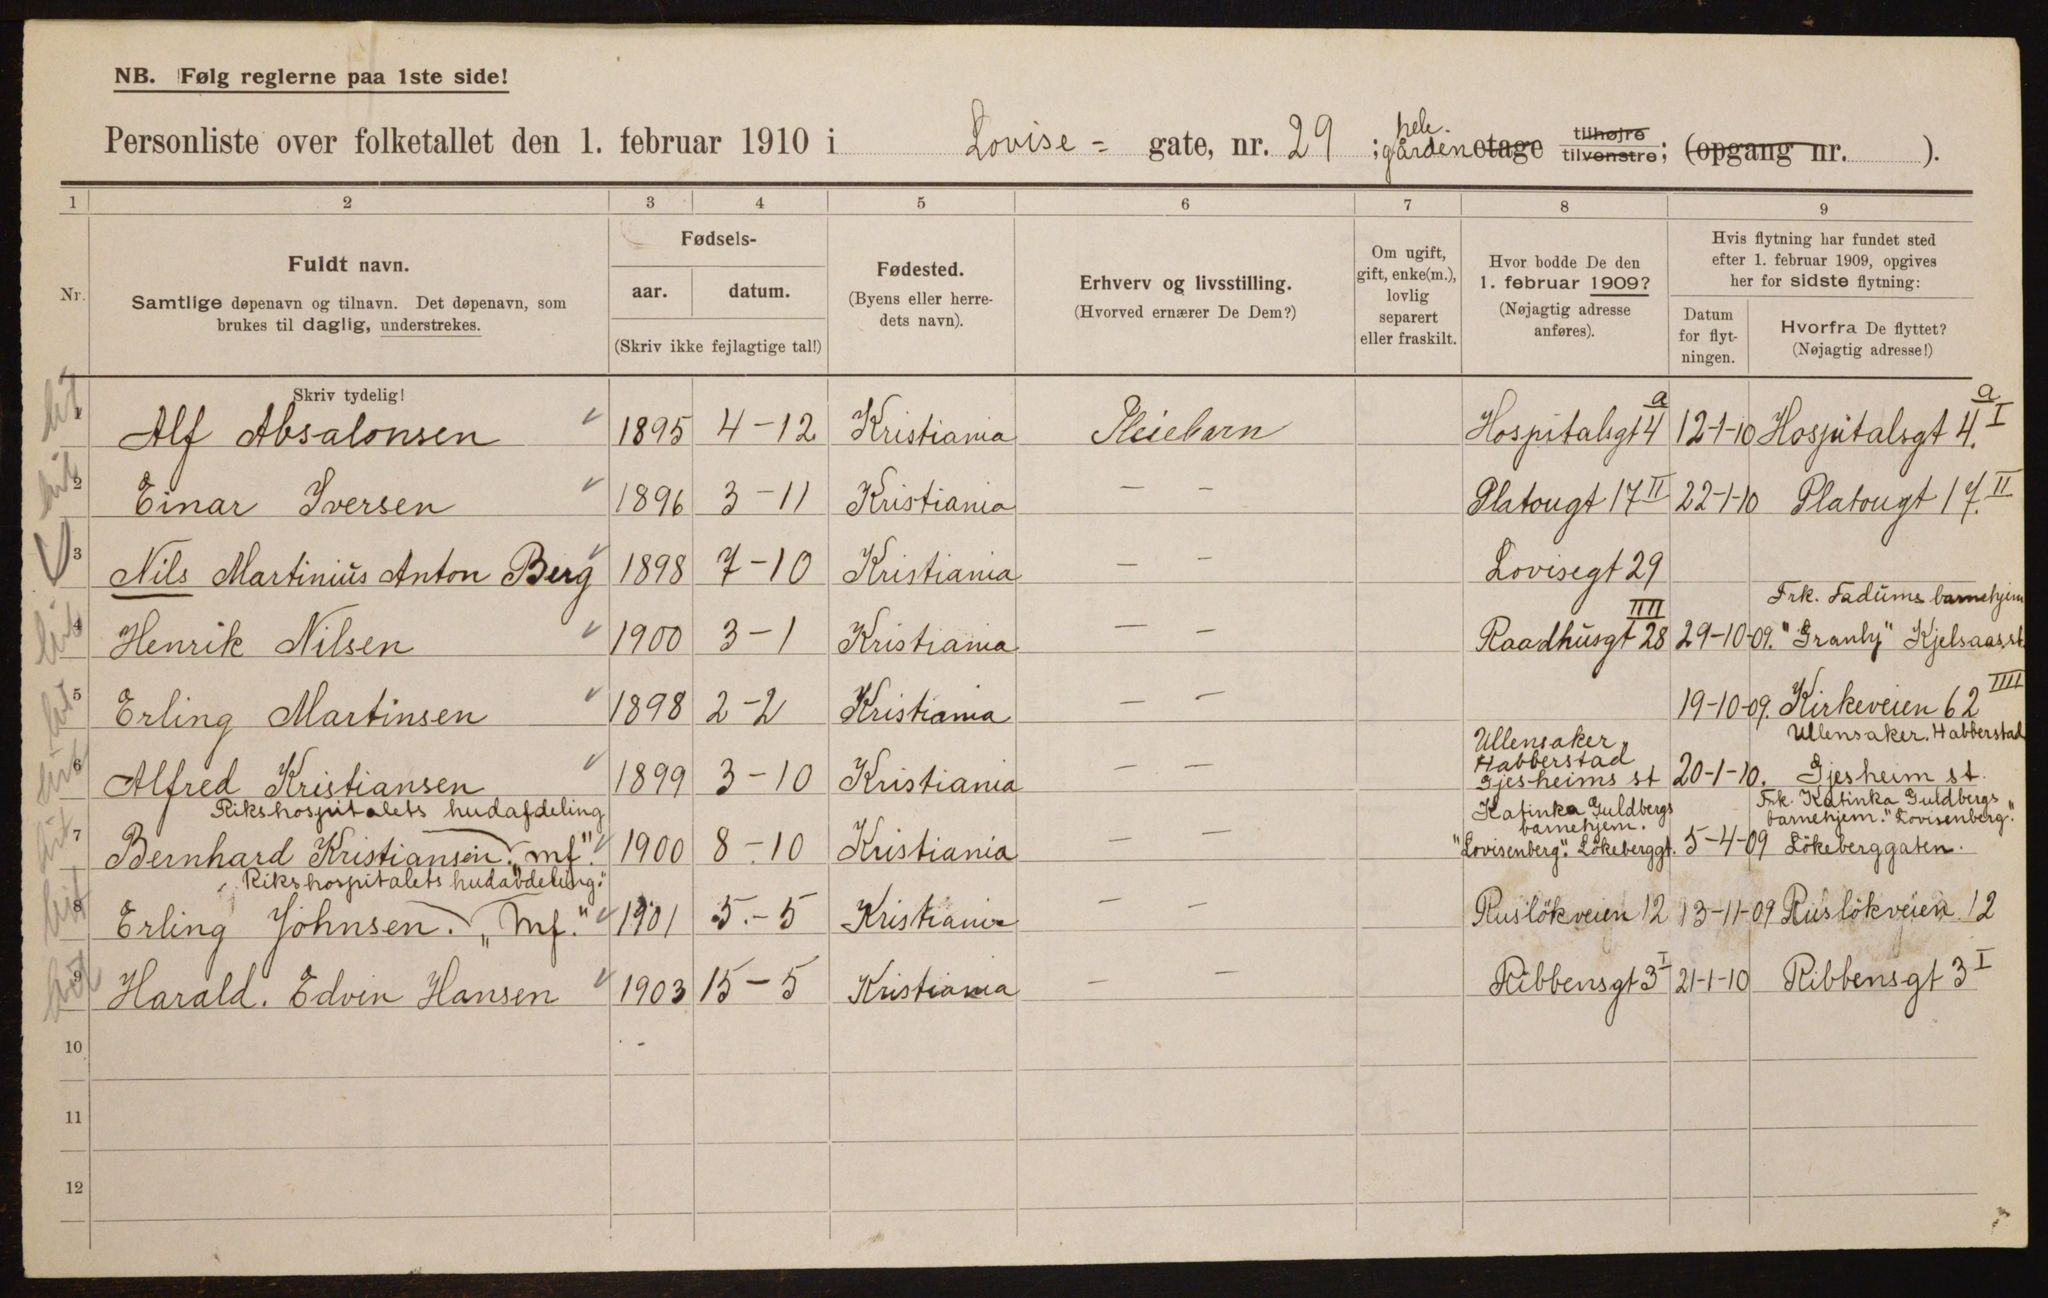 NB. Følg reglerne paa 1ste side!
Personliste over folketallet den 1. februar 1910 i Lovise = gate, nr. 29 ; hele gården etage tilhøjre tilvenstre; (opgang nr. ).
1 2 3 4 5 6 7 8 9
Nr.
Fuldt navn.
Samtlige døpenavn og tilnavn. Det døpenavn, som
brukes til daglig, understrekes.
Skriv tydelig!
Fødsels-
aar. datum.
(Skriv ikke fejlagtige tal!)
Fødested.
(Byens eller herre-
dets navn).
Erhverv og livsstilling.
(Hvorved ernærer De Dem?)
Om ugift,
gift, enke(m.),
lovlig
separert
eller fraskilt.
Hvor bodde De den
1. februar 1909?
(Nøjagtig adresse
anføres).
Hvis flytning har fundet sted
efter 1. februar 1909, opgives
her for sidste flytning:
Datum
for flyt-
ningen.
Hvorfra De flyttet?
(Nøjagtig adresse!)
1 Alf Absalonsen 1895 4-12 Kristiania Pleiebarn Hospitalsgt 4 a 12-1-10 Hospitalsgt 4. a I
2 Einar Iversen 1896 3-11 Kristiania — — Platougt 17 II 22-1-10 Platougt 17. II
3 Nils Martinius Anton Berg 1898 7-10 Kristiania — — Lovisegt 29
Frk. Fadums barnehjem
4 Henrik Nilsen 1900 3-1 Kristiania — — Raadhusgt 28 IIII 29-10-09. "Granly" Kjelsaas st.
5 Erling Martinsen 1898 2-2 Kristiania — — 19-10-09. Kirkeveien 62 IIII
Ullensaker, Ullensaker. Habberstad
Habberstad
6 Alfred Kristiansen 1899 3-10 Kristiania — — Gjesheims st 20-1-10. Gjesheim st.
Rikshospitalets hudafdeling Katinka Guldbergs Frk. Katinka Guldbergs
barnehjem. barnehjem. "Lovisenberg."
7 Bernhard Kristiansen. "mf". 1900 8-10 Kristiania — — "Lovisenberg". Lökeberggt. 5-4-09 Lökeberggaten.
Rikshospitalets hudavdeling."
8 Erling Johnsen. "mf." 1901 5.-5 Kristiania — — Rusløkveien 12 13-11-09 Rusløkveien 12
9 Harald. Edvin Hansen 1903 15-5 Kristiania — — Ribbensgt 3 I 21-1-10 Ribbensgt 3 I
10
11
12